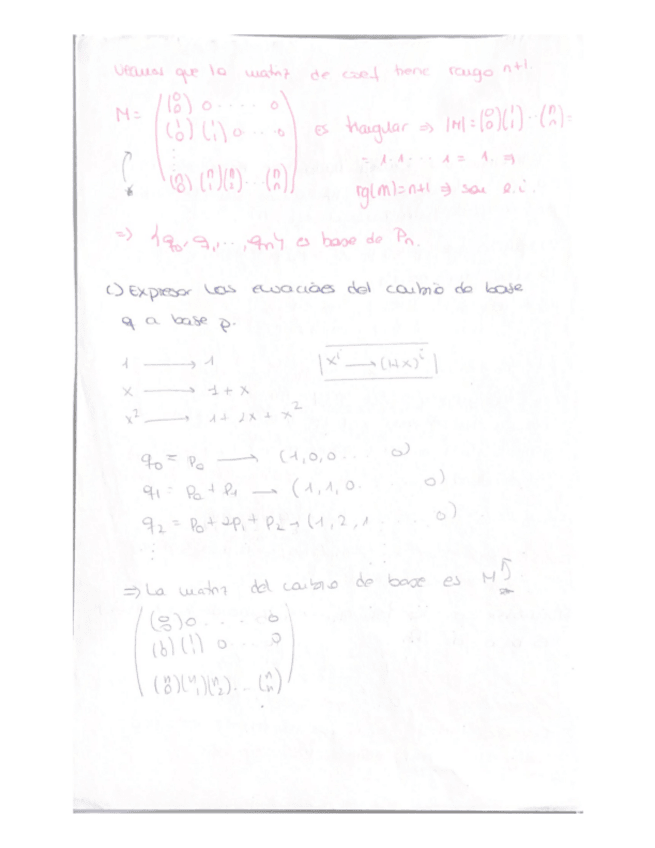 veamos que la matriz de coef tiene rango n+1.
M = ( (0 0) 0 ..... 0
(1 0) (1 1) 0 ... 0 es triangular ⇒ |M| = (0 0)(1 1)...(n n) =
⋮ = 1·1· ... 1 = 1. ⇒
(n 0) (n 1)(n 2)... (n n) ) rg(M)=n+1 ⇒ son l.i.
⇒ {q0, q1, ..., qn} es base de Pn.
c) Expresar las ecuaciones del cambio de base
q a base p.
1 → 1 | x^i → (1+x)^i |
x → 1 + x
x^2 → 1 + 2x + x^2
q0 = p0 → (1,0,0 ... 0)
q1 = p0 + p1 → (1,1,0. 0)
q2 = p0 + 2p1 + p2 → (1,2,1 ... 0)
⋮
⇒ La matriz del cambio de base es M
( (0 0) 0 .... 0
(1 0) (1 1) 0 ... 0
(n 0)(n 1)(n 2)... (n n) )